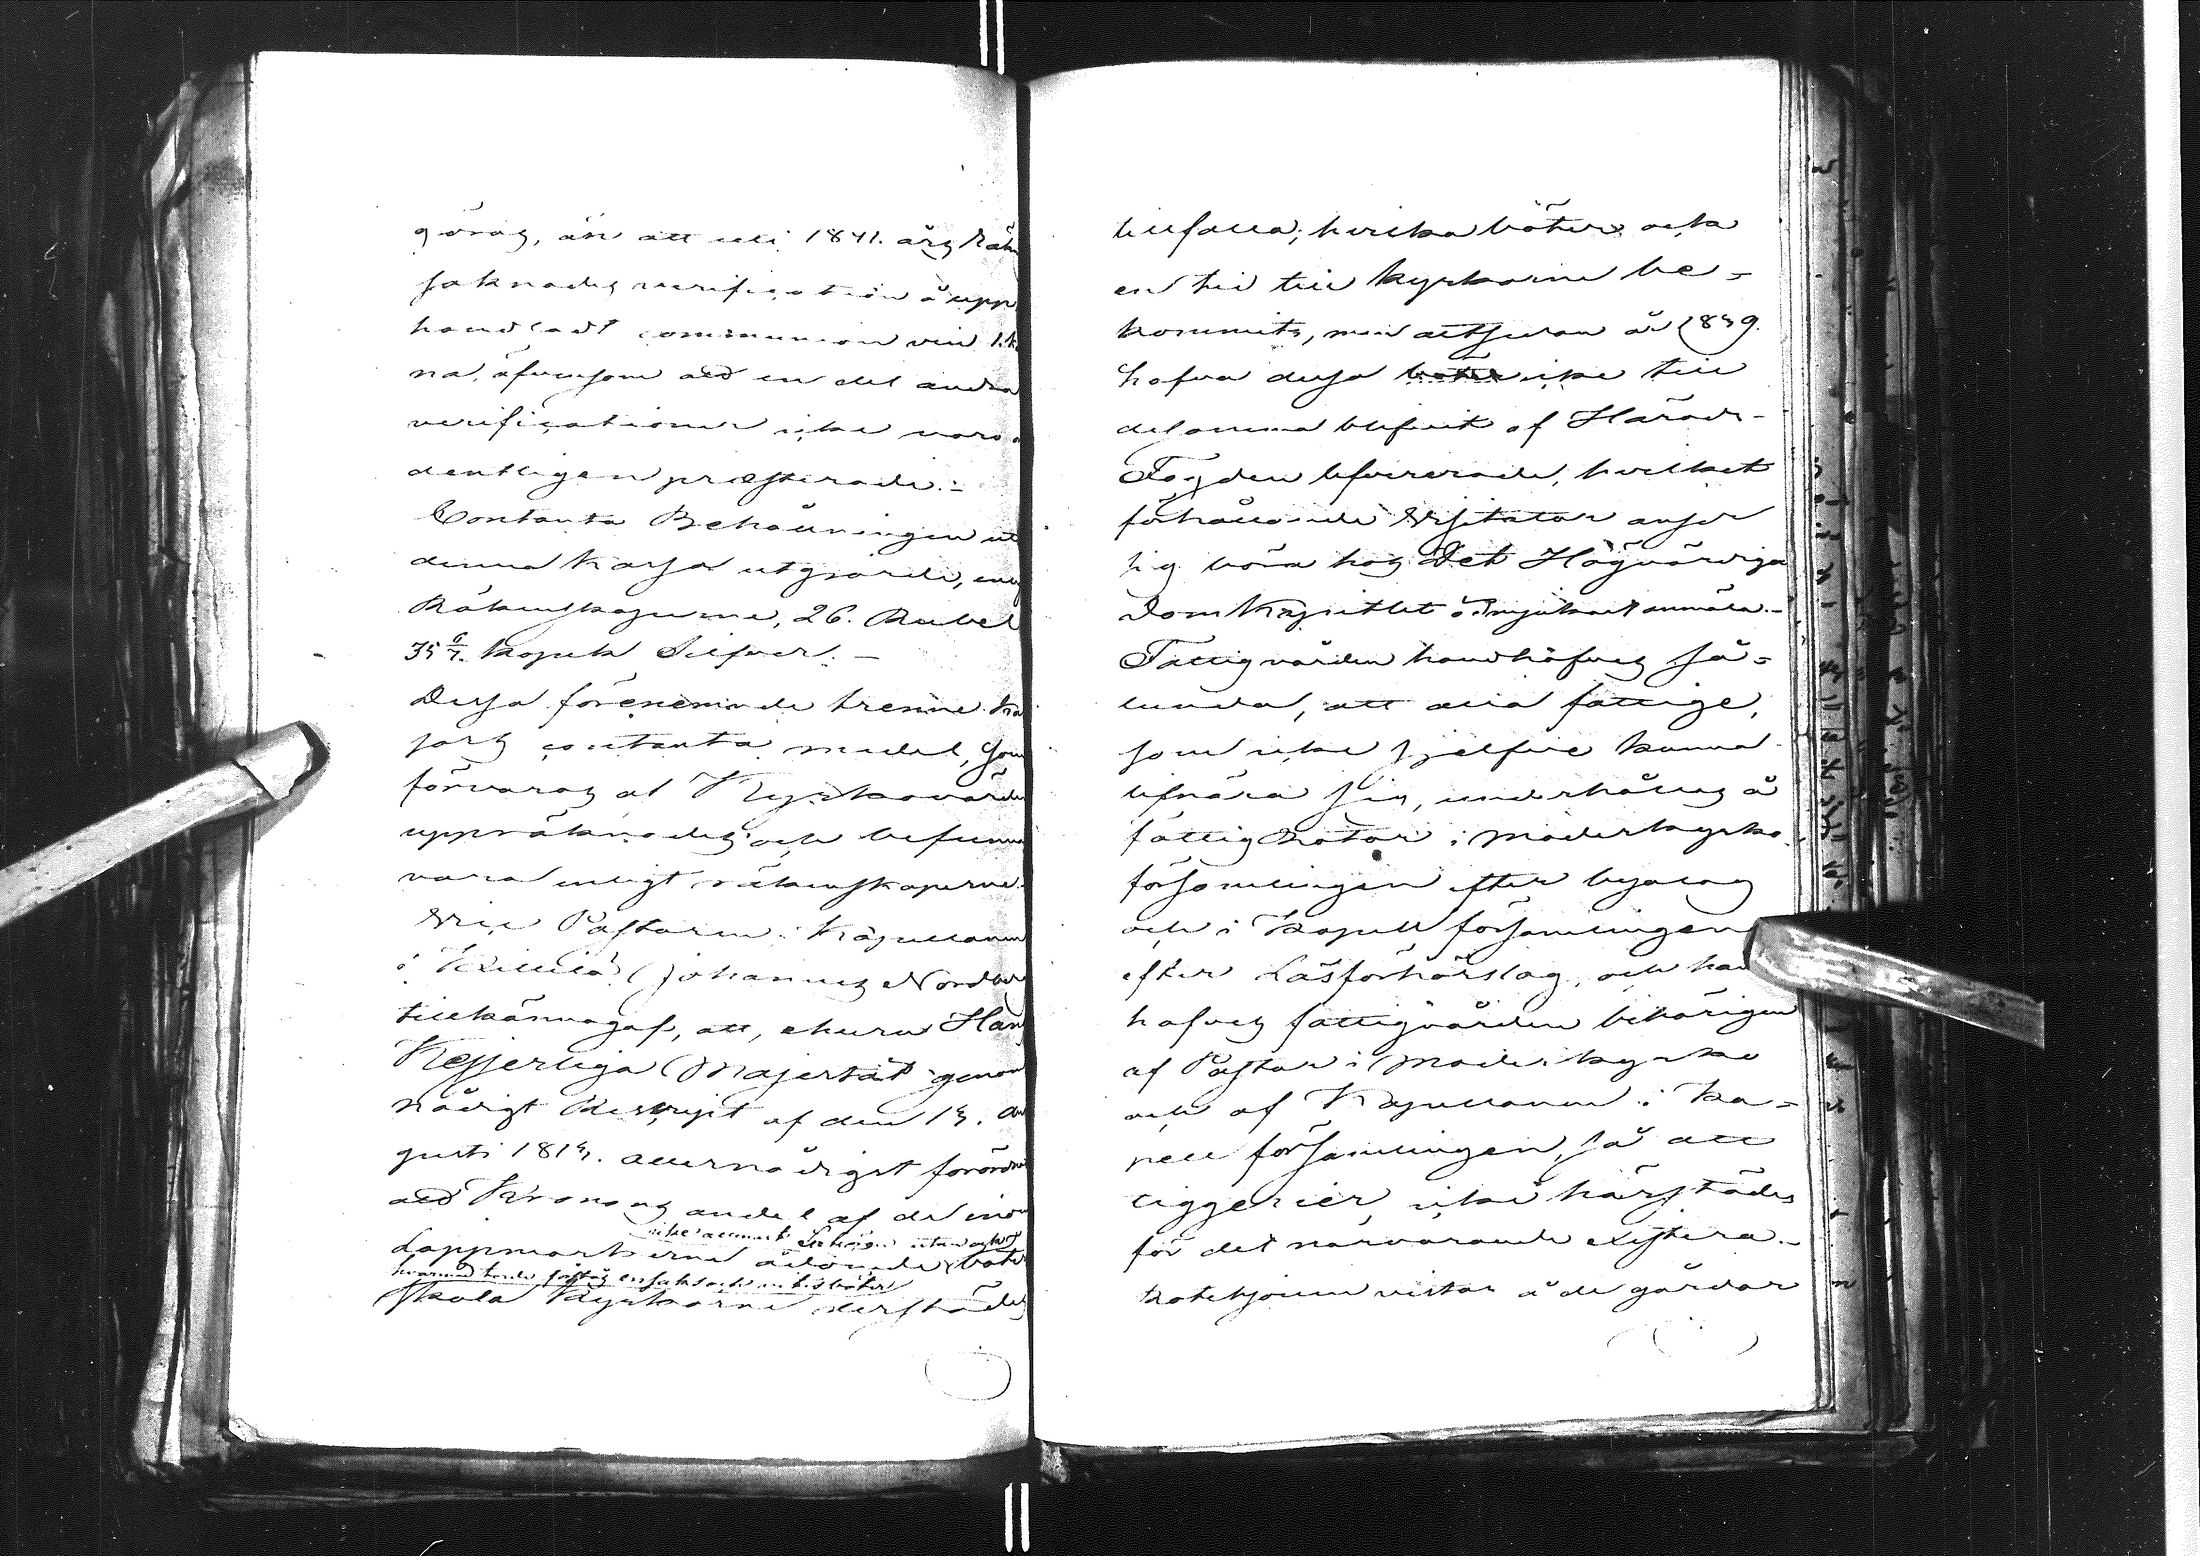 göras, än att uti 1841. års Räk
saknades verification å upp
handladt communion vin 
na, äfvensom att en del andra
verificationer icke voro
dentligen præsterade.-
Contanta Behållningen ut
denna Kassa utgjorde, enl
Räkenskaperne, 26. Rubel
35 6/7. kopek Silfver. -
Dessa förenämnde trenne Ka
sors contanta medel, som
förvaras af Kyrkovärden
uppräknades och befunnos
vara enligt räkenskaperne.
Vice Pastoren Kapellanen
i Johannes Nordberg
tillkännagaf, att, ehuru Hans
Kejserliga Majestät genom
nådigt Rescript af den 14. Au
gusti 1814. allernådigst förordnat
att Kronans andel af de inom
icke allmänt Sakören utan ock
Lappmarkerne ådömde böter
hvarmed torde förstås ensaks och vitesböter
skola Kyrkorne derstädes
tillfalla; hvilka böter ock
en tid till kyrkorne be-
kommits, men alltsedan år 1839.
hafva dessa böter icke till
delarna blifvit af Härads-
Fogden levererade, hvilket
förhållande Visitator anser
sig böra hos Det Högvördiga
DomKapitlet ödmjukast anmäla.-
Fattigvården handhafves så-
lunda, att alla fattige,
som icke sjelfve kunna
lifnära sig, underhållas å
fattig Rotar i Moderkyrko
församlingen efter byalag
och i Kapell församlingen
efter Läsförhörslag, och hand
hafves fattigvården behörigen
af Pastor i Moderkyrko
och af Kapellanen i Ka-
pell församlingen, så att
tiggerier icke härstädes
för det närvarande existera.-
Rotehjonen vistas å de gårdar